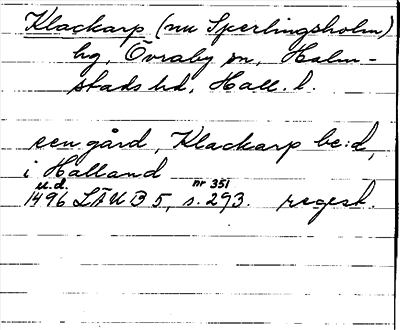 Klackarp (nu Sperlingsholm)
hg, Övraby sn, Halm-
stads hd, Hall. l.
een gård, Klackarp be:d,
i Halland
u.d. nr 351
1496 LÄU B 5, s. 293. regest.